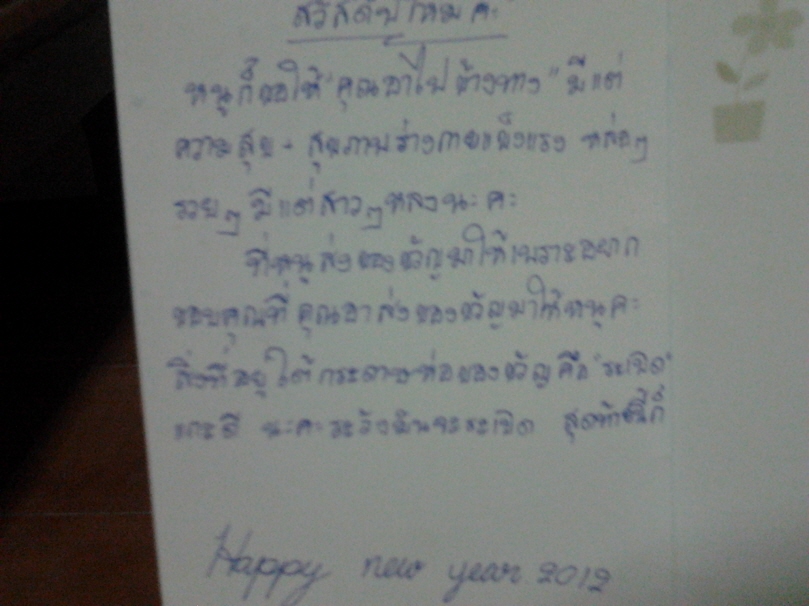 สวัสดีปีใหม่ค่ะ
หนูก็ขอให้ "คุณอาไปข้างทาง" มีแต่
ความสุข + สุขภาพร่างกายแข็งแรง หล่อๆ
รวยๆ มีแต่สาวๆหลงนะคะ
ที่หนูส่งของขวัญมาให้เพราะอยาก
ขอบคุณที่คุณอาส่งของขวัญมาให้หนูค่ะ
สิ่งที่อยู่ใต้กระดาษห่อของขวัญคือ "ระเบิด"
แกะดี นะคะระวังมันจะระเบิด สุดท้ายนี้ก็
Happy new year 2012